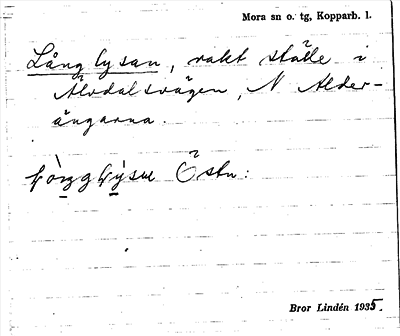 Mora sn o. tg, Kopparb. l.
Långlysan, rakt ställe i
Älvdalsvägen, N Alder-
ängarna.
Östn:
Bror Lindén 1935.